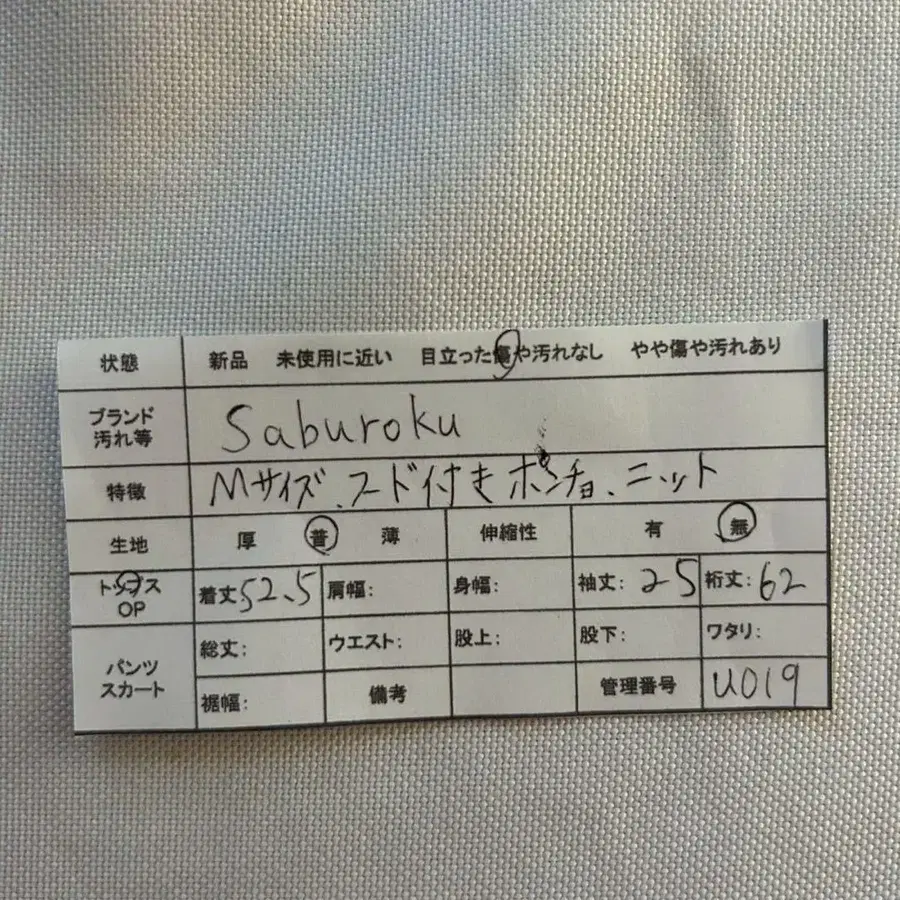 状態 新品 未使用に近い 目立った傷や汚れなし やや傷や汚れあり
ブランド
汚れ等
Saburoku
特徴 Mサイズ、フード付きポンチョ、ニット
生地 厚 普 薄 伸縮性 有 無
トップス
OP
着丈52.5 肩幅: 身幅: 袖丈:25 裄丈:62
パンツ
スカート
総丈: ウエスト: 股上: 股下: ワタリ:
裾幅: 備考 管理番号 U019